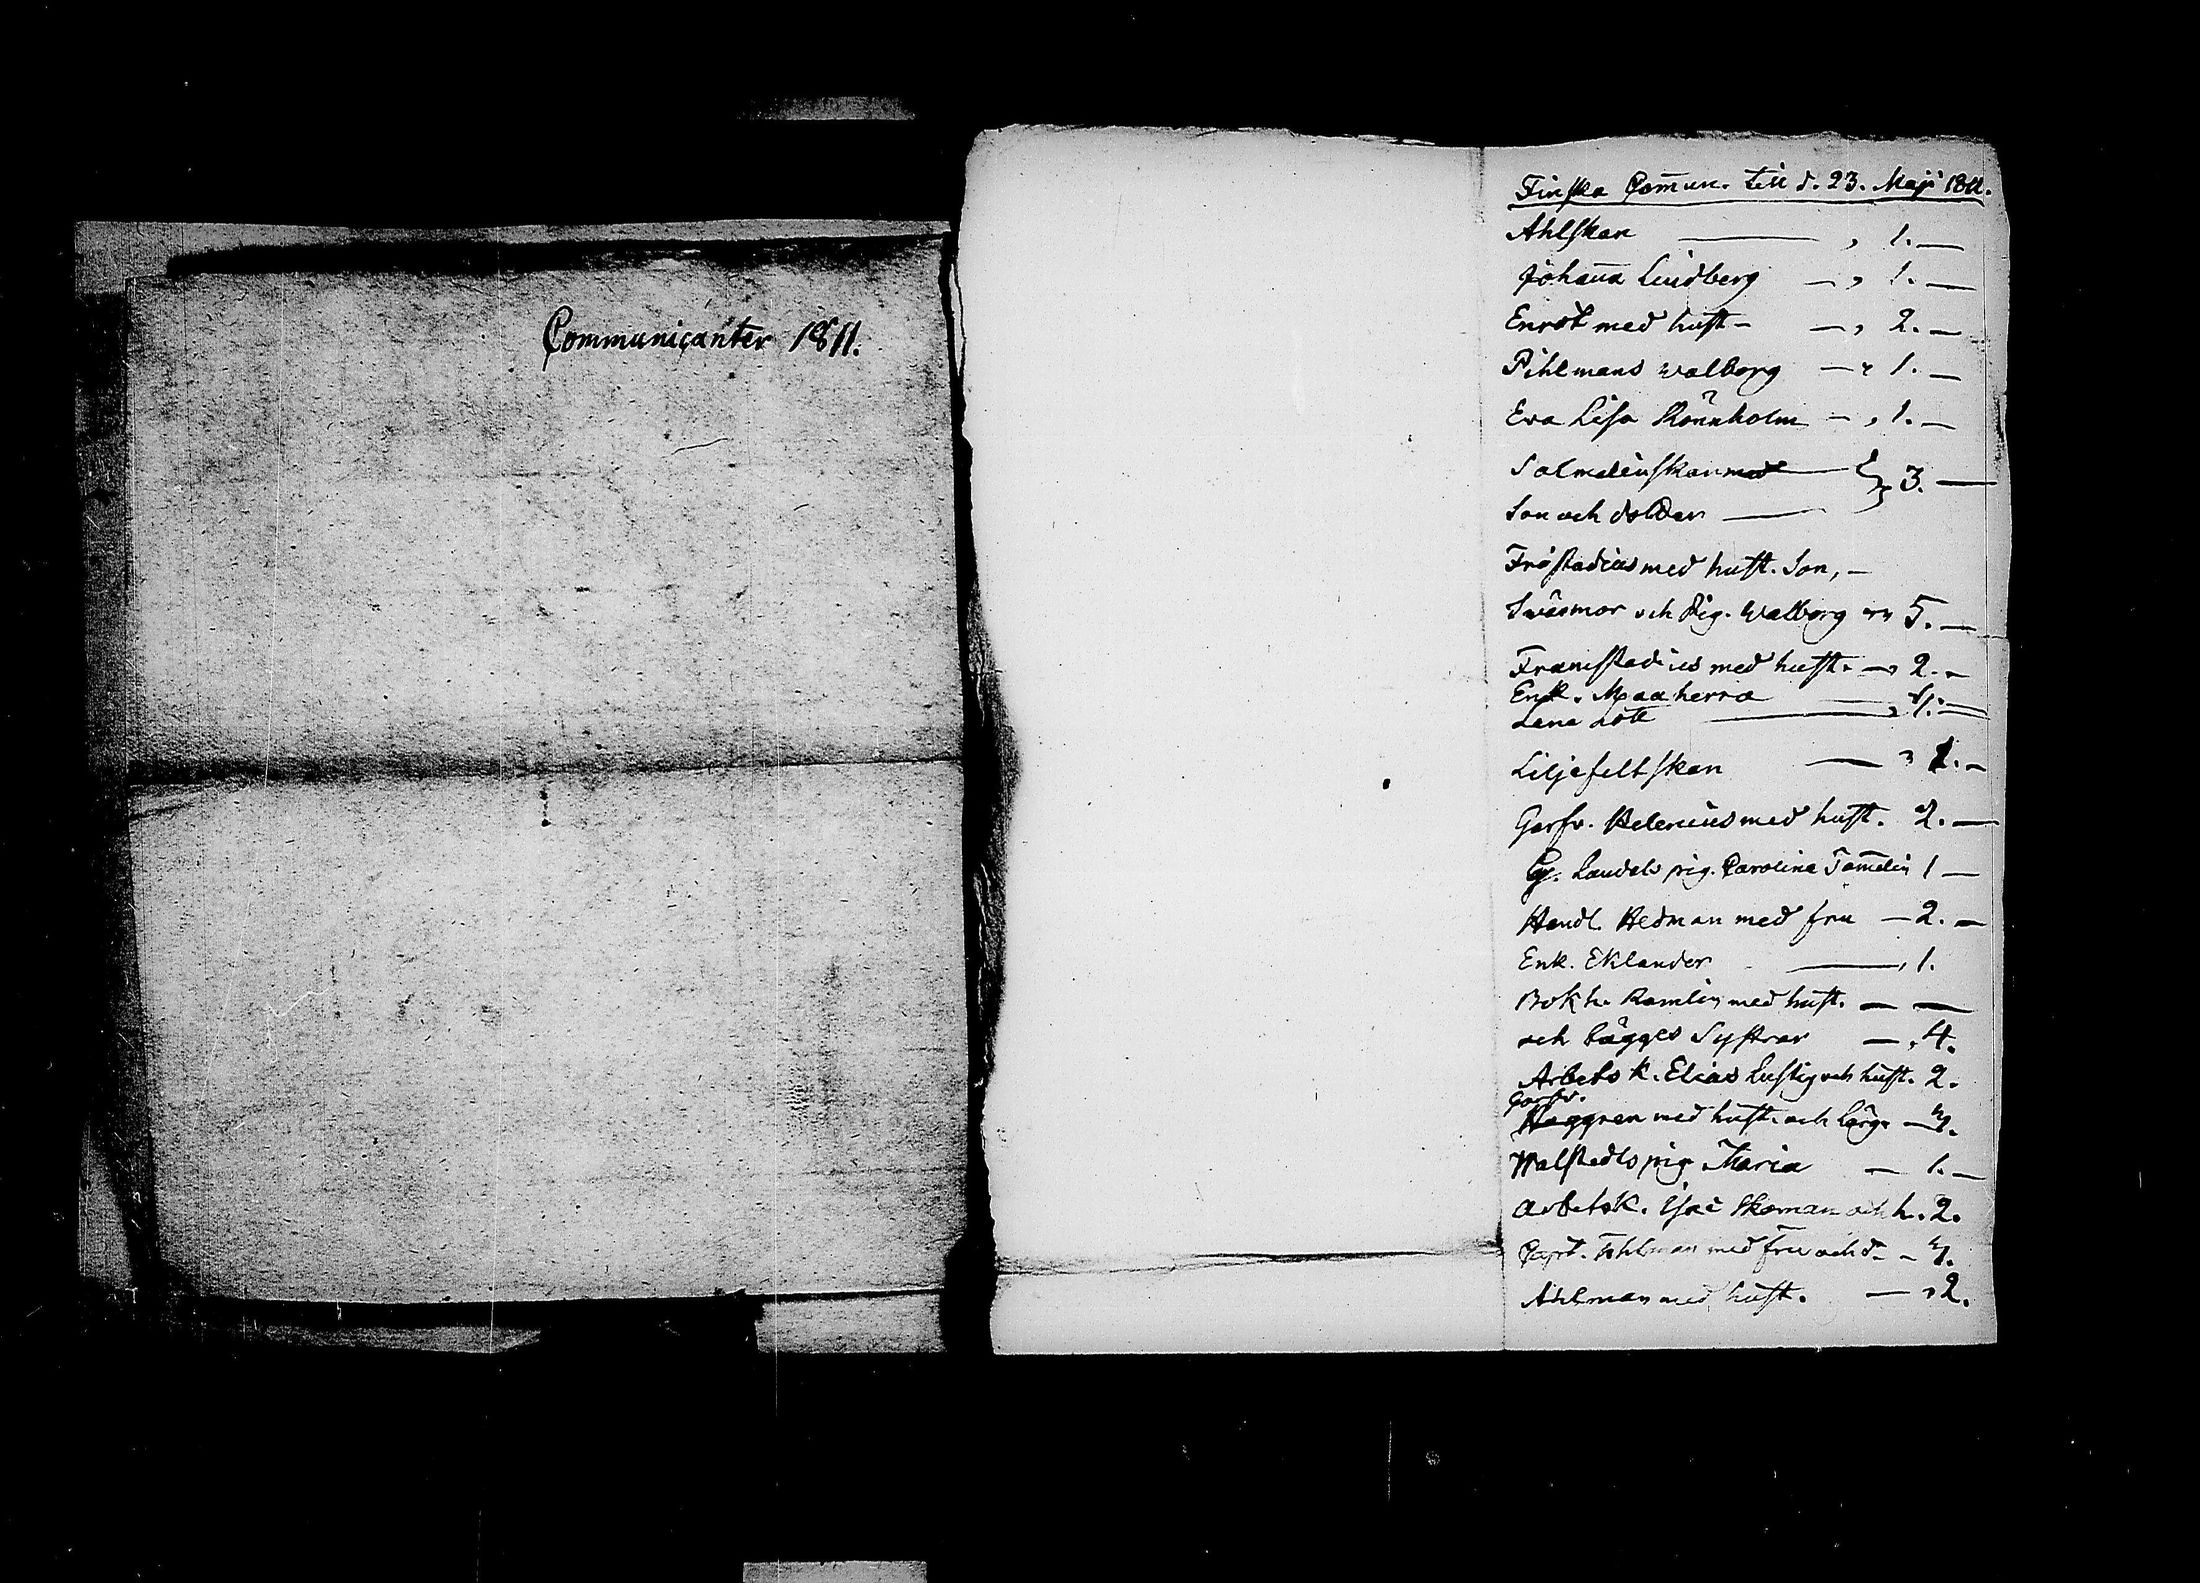 Communicanter 1811.
Finska Com̄un. till d. 23. Maji 1811.
Ahlskan — , 1. —
Johan̄a Lindberg — , 1. —
Enrot med hust — — , 2. —
Pihlmans Walborg — , 1. —
Eva Lisa Rönnholm — , 1. —
Salmeleinskan med — } 3. —
Son och dotter —
Fröstadius med hust. Son, —
Swärmor och Pig. Walborg 5. —
Framstadius med hust. — , 2. —
Enk. Maaherra — 1. —
Lena Lott — , 1. —
Liljefeltskan — , 1. —
Garfv. Helenius med hust. 2. —
G. Laudels pig. Carolina Tam̄elin 1 —
Handl. Hedman med fru — 2. —
Enk. Eklander — , 1.
Bokh. Ramlin med hust. — —
och bägges Systrar — , 4.
Arbetsk. Elias Lustig och hust. 2.
Garfv.
Häggren med hust. och Lärg. — 3.
Walstedts pig. Maria — 1. —
Arbetsk. Isac Skoman och h. 2.
Capt. Fahlman med fru och d. — 3.
Ahlman med hust. — , 2.